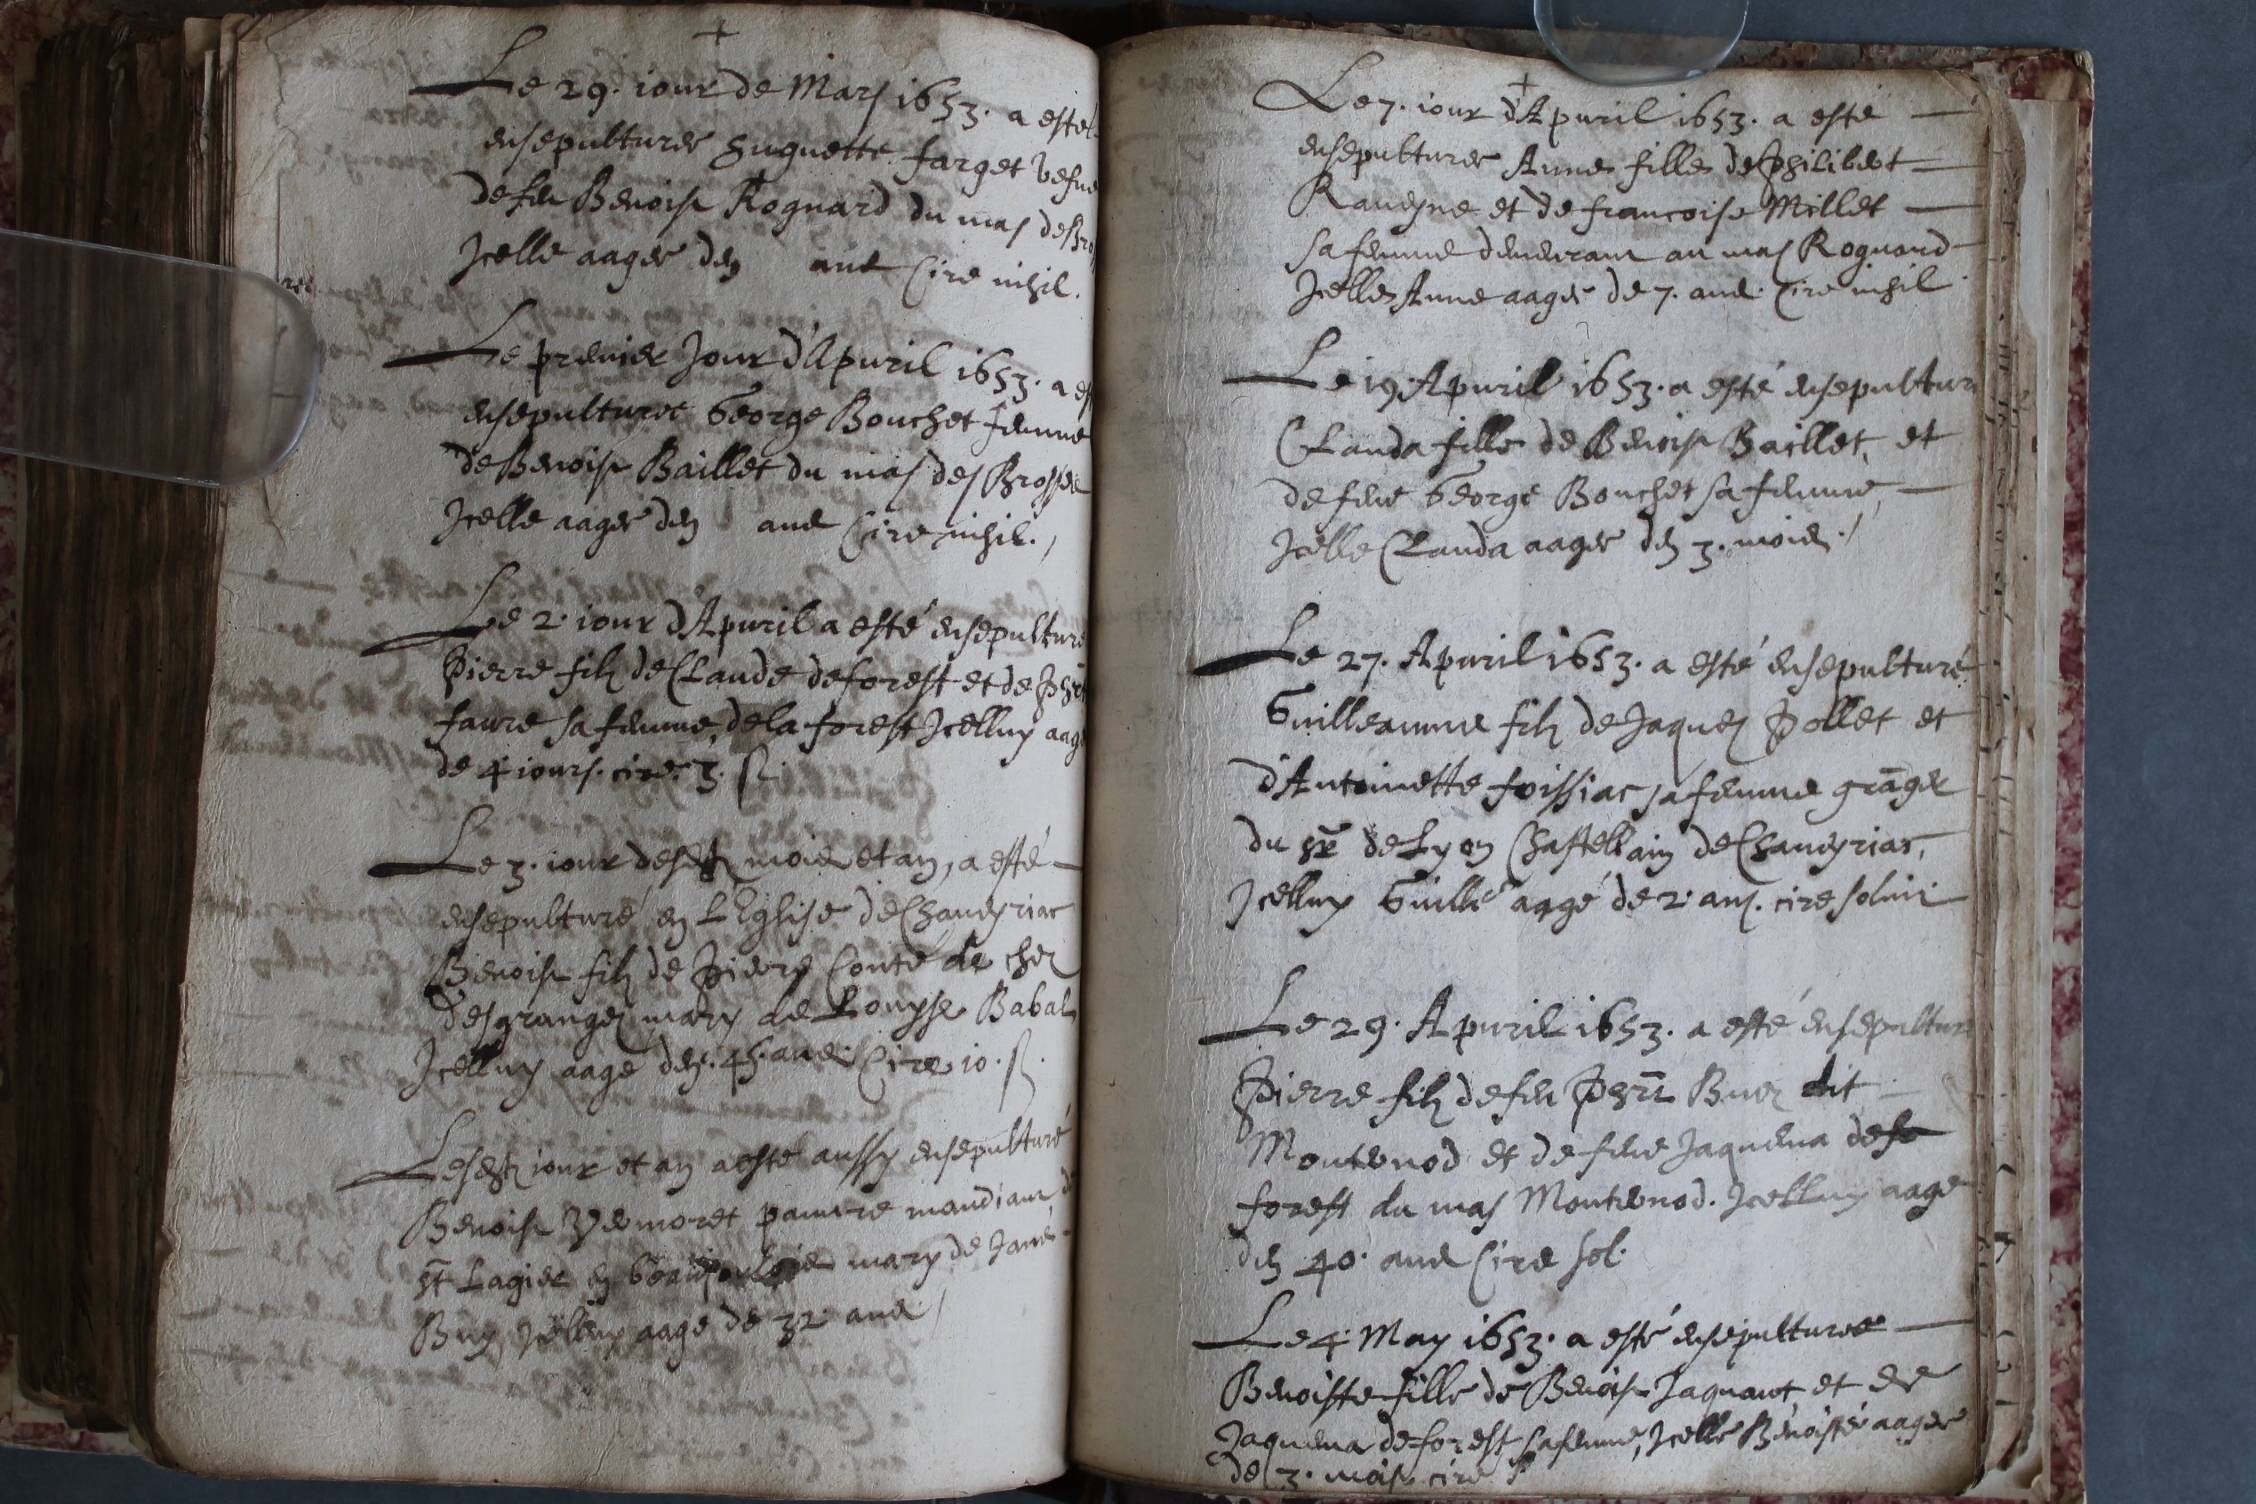 +
Le 29. iour de Mars 1653. a esté
ensepulturee huguette farget vefve
de feu Benoist Rognard du mas des Bro
Icelle aagee den ans Cire nihil.
Le premier Jour d'Apuril 1653. a es
ensepulturee George Bouchet femme
de Benoist Baillet du mas des Brosses
Icelle aagee den ans Cire nihil.
Le 2. iour d'Apuril a esté ensepulturé
Pierre filz de Claude deforest et de
faure sa femme, dela forest Icelluy aagé
de 4 iours. cire. 3. s.
Le 3. iour desd. mois et an, a esté
ensepulturé en L'Eglise de Chaveyriac
Benoist filz de Pierre Conté de chez
des granges mary de Louyse Babal
Icelluy aagé den. 45. ans. Cire 10. s.
Lesd. iour et an a esté aussy ensepulturé
Benoist pauvre mandiant de
St Lagier en mary de
Buy, Icelluy aagé de 32 ans
+
Le 7. iour d'Apuril 1653. a esté
ensepulturee Anne fille de Philibert
Raveyne et de francoise Millet
sa femme demeurant au mas Rognard
Icelle Anne aagee de 7. ans. Cire nihil
Le 19. Apuril 1653. a esté ensepultur
Clauda fille de Benoist Baillet, et
de feue George Bouchet sa femme,
Icelle Clauda aagee den 3. mois.
Le 27. Apuril 1653. a esté ensepulturé
Guilleaume filz de Jaques Pollet et
d'Antoinette foissiac sa femme grãger
du Sr de Lyon Chastellain de Chaveyriac,
Icelluy Guillé aagé de 2. ans. cire soluit
Le 29. Apuril 1653. a esté ensepultur
Pierre filz de feu Phert Buez dit
Montvenod et de feue Jaquema de
forest du mas Montvenod. Icelluy aagé
den 40. ans Cire sol.
Le 4. May 1653. a esté ensepulturee
Benoiste fille de Benoist Jaquant et de
Jaquema deforest sa femme, Icelle Benoiste aagee
de 3. mois cire